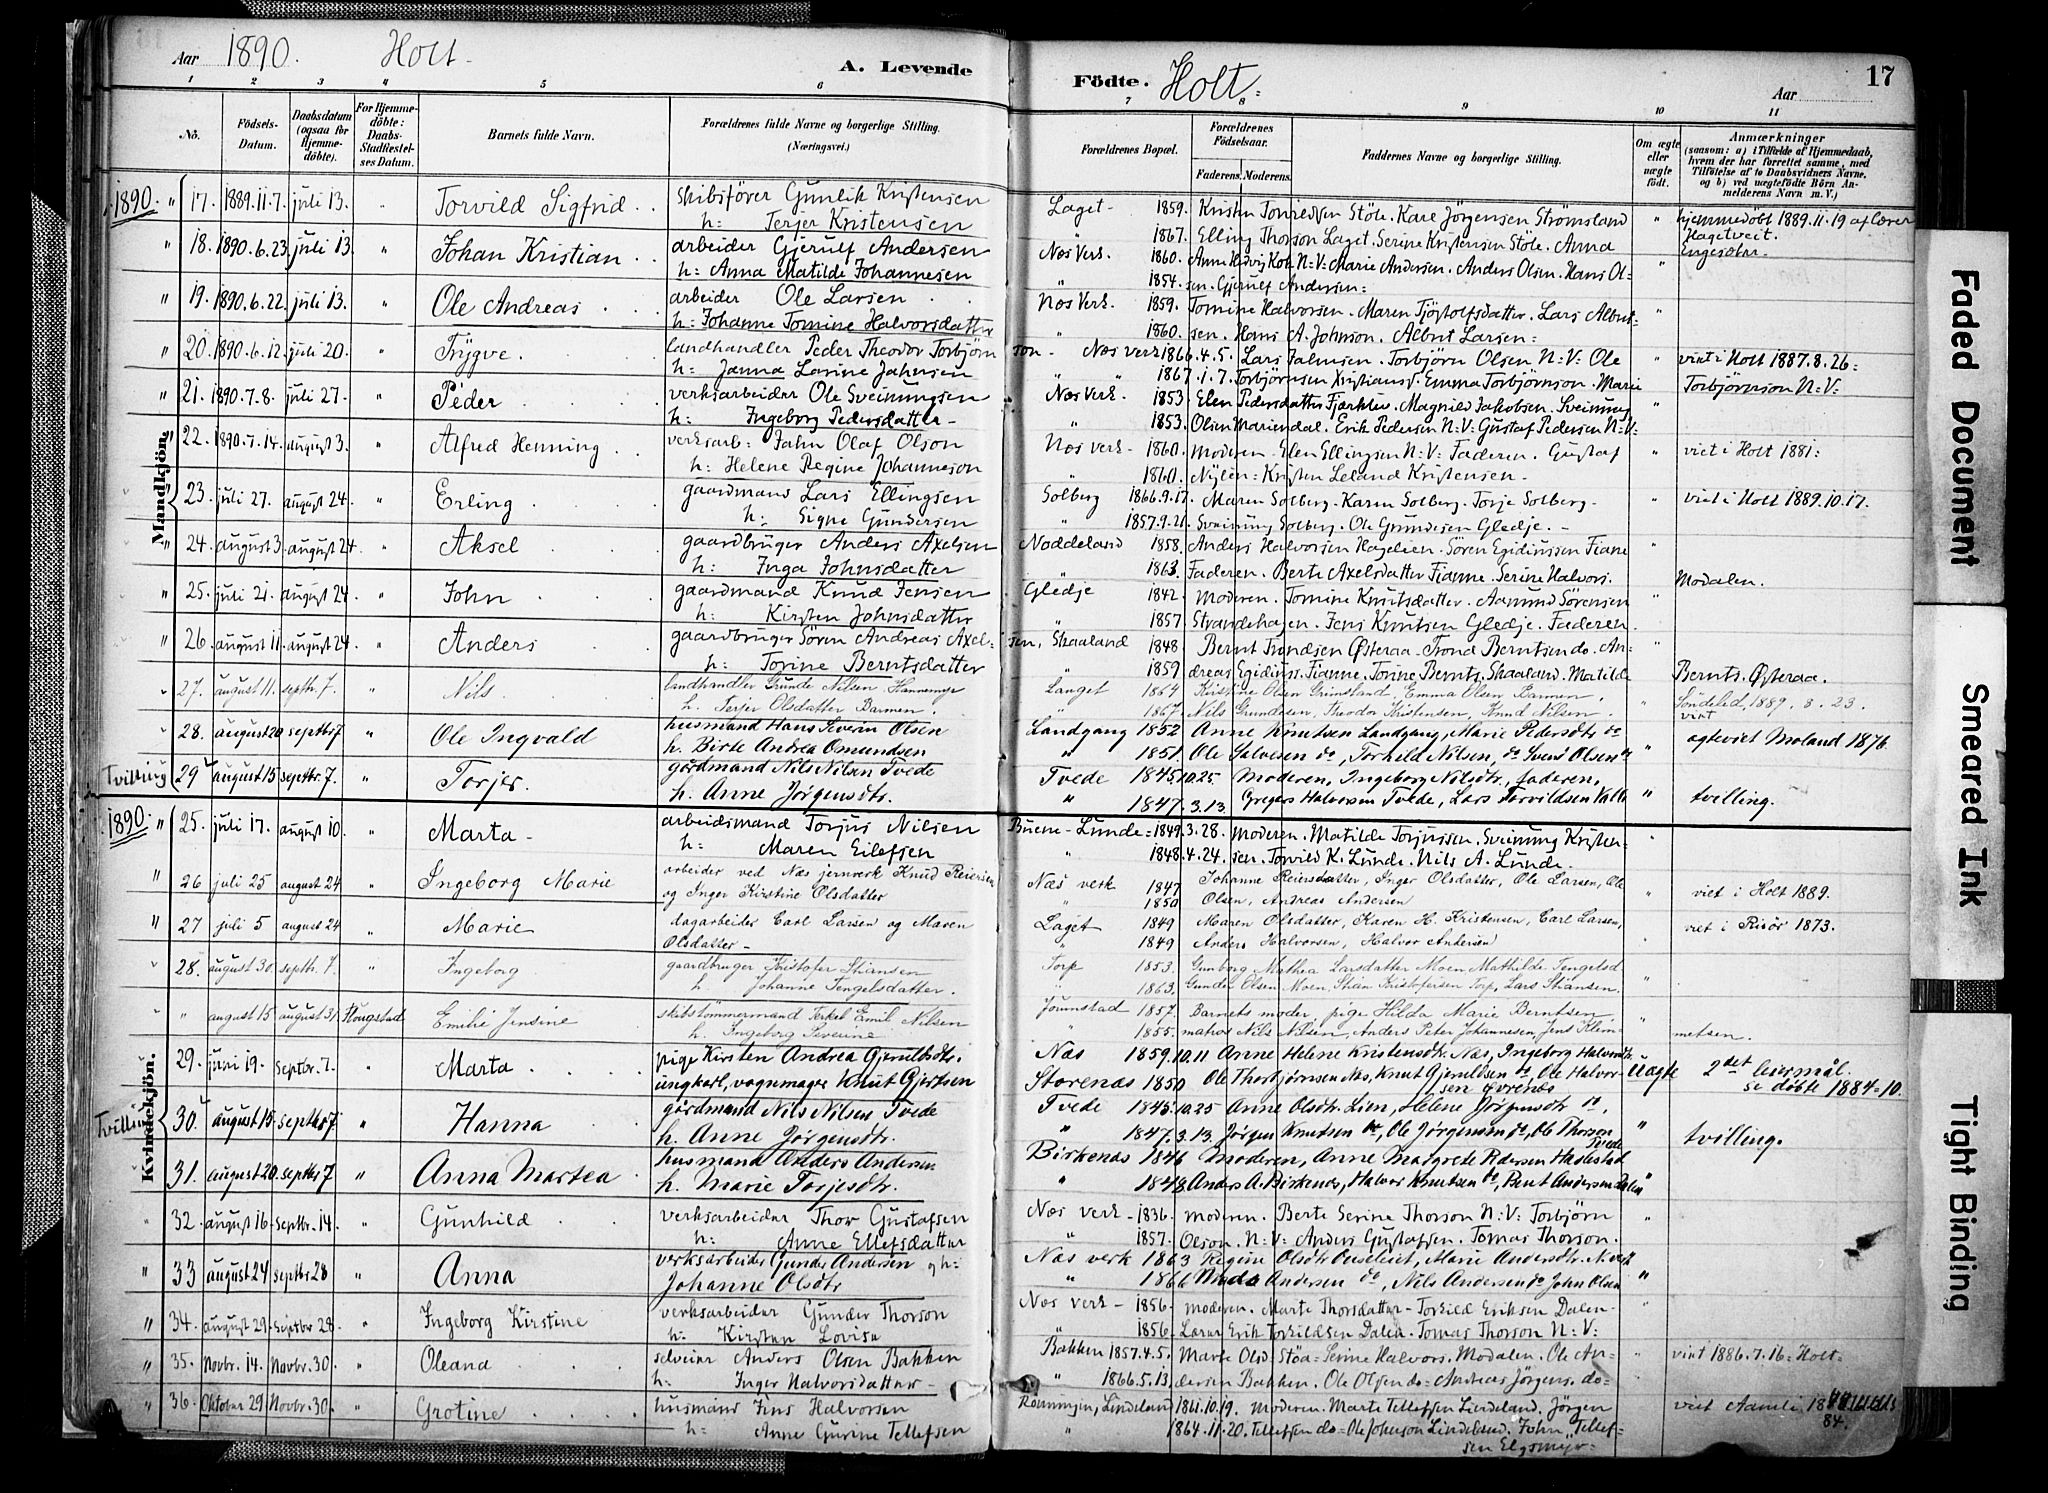 Aar 1890. Holt. A. Levende
Födte. Holt. Aar 17
1 2 3 4 5 6 7 8 9 10 11
Nô. Födsels-Datum. Daabsdatum (ogsaa for Hjemmedöbte). For Hjemmedöbte: Daabs-Stadfæstelses Datum. Barnets fulde Navn. Forældrenes fulde Navne og borgerlige Stilling. (Næringsvei.)
Forældrenes Bopæl. Forældrenes Födselsaar. Faderens. Moderens. Faddernes Navne og borgerlige Stilling. Om ægte eller uægte født. Anmærkninger (saasom: a) i Tilfælde af Hjemmedaab, hvem der har forrettet samme, med Tilföielse af to Daabsvidners Navne, og b) ved uægtefödte Börn Anmelderens Navn m. V.)
Mandkjön.
1890. " 17. 1889.11.7. juli 13. " Torvild Sigfrid. Skibsfører Gunlik Kristensen Laget 1859. Kristen Tomredsen Støle. Kare Jörgensen Strömsland " hjemmedöbt 1889.11.19 af lærer
h: Terjer Kristensen " 1867. Elling Thorson Laget. Serine Kristensen Støle. Anna Hagetveit.
" 18. 1890.6.23. juli 13. " Johan Kristian. arbeider Gjerulf Andersen Næs Verk. 1860. Anne Hedvig N:V: Marie Andersen. Anders Olsen. Hans Ol- "
h: Anna Matilde Johannesen " 1854. sen. Gjerulf Andersen:
" 19. 1890.6.22. juli 13. " Ole Andreas. arbeider Ole Larsen Næs Verk. 1859. Tomine Halvorsen. Maren Tjöstolfsdatter. Lars Albret- "
h: Johanne Tomine Halvorsdatter " 1860. sen. Hans A. Johnson. Albret Larsen:
" 20. 1890.6.12. juli 20. " Trygve. landhandler Peder Theodor Torbjörnson. Næs verk 1866.4.5. Lars Jahnsen. Torbjörn Olsen N:V: Ole " viet i Holt 1887.8.26:
h: Janna Larine Jahnsen " 1867.1.7. Torbjörnsen Kristiansf. Emma Torbjörnson. Marie Torbjörnson N:V:
" 21. 1890.7.8. juli 27. " Peder verksarbeider Ole Sveinungsen Næs Verk. 1853 Elen Pedersdatter Fjærkler. Magnild Jakobsen. Sveinung "
h: Ingeborg Pedersdatter " 1853. Olsen Mariendal. Erik Pedersen N:V: Gustaf Pedersen N:V:
" 22. 1890.7.14. august 3. " Alfred Henning. verksarb: Jahn Olaf Olson Næs verk. 1860. Moderen. Elen Ellingsen N:V: Faderen. Gustaf " viet i Holt 1881:
h: Helene Regine Johanneson " 1860. Nylen: Kristen Leland Kristensen.
23. juli 27. august 24. " Erling. gaardmand Lars Ellingsen Solberg 1866.9.17. Maren Solberg. Karen Solberg. Torje Solberg. " viet i Holt 1889.10.17.
h: Signe Gundersen " 1857.9.21. Sveinung Solberg. Ole Grundesen Gledje.
" 24. august 3. august 24. " Aksel. gaardbruger Anders Axelsen Noddeland 1858. Anders Halvorsen Hagelien. Sören Egidiussen Fiane "
h: Inga Johnsdatter " 1863. Faderen. Berte Axelsdatter Fianne. Serine Halvors. Modalen.
" 25. juli 21. august 24. " John. gaardmand Knud Jensen Gledje 1842. Moderen. Tomine Knutsdatter. Aamund Sörensen
h: Kirsten Johnsdatter " 1857. Strandehagen. Jens Knutsen Gledje. Faderen.
" 26. august 11. august 24. " Anders. gaardbruger Sören Andreas Axelsen, Skaaland 1848. Bernt Trondsen Østeraa. Trond Berntsen do. An- "
h: Torine Berntsdatter " 1859 dreas Egidiuss. Fianne. Torine Bernts. Skaaland. Matilde Bernts. Østeraa.
27. august 11. septbr. 7. " Nils. landhandler Grunde Nilsen Hannemyr Langet 1864 Kristine Olsen Grimsland, Emma Olsen Barmen,
h. Terjer Olsdatter Barmen. " 1867. Nils Grundesen, Theodor Kristensen, Knud Nilsen. " Söndeled, 1889. 8. 23. viet
28. august 20 septbr 7 " Ole Ingvald husmand Hans Severin Olsen Landgang 1852 Anne Knutsen Landgang, Marie Pedersdtr do
h. Birte Andrea Omundsen " 1851. Ole Salvesen do, Torkild Nilsen, do Svend Olsen do " ægteviet Moland 1876.
Tvilling 29 august 15 septbr. 7. " Torjer. gårdmand Nils Nilsen Tvede Tvede 1845.10.25. Moderen, Ingeborg Nilsdtr, faderen,
h. Anne Jørgensdtr. " 1847.3.13. Gregers Halvorsen Tvede, Lars Torvildsen Valle " tvilling.
Kvindekjön.
1890. " 25. juli 17. august 10. " Marta arbeidsmand Torjus Nilsen Buene-Lunde: 1849.3.28. Moderen. Matilde Torjussen. Sveinung Kristen- "
h: Maren Eilefsen " 1848.4.24. sen. Torvild K. Lunde. Nils A. Lunde.
" 26 juli 25 august 24 " Ingeborg Marie arbeider ved Næs jernværk Knud Reiersen Næs verk 1847 Johanne Reiersdatter, Inger Olsdatter, Ole Larsen, Ole
og Inger Kristine Olsdatter " 1850 Olsen, Andreas Andersen viet i Holt 1889.
" 27 juli 5 august 24 " Marie dagarbeider Carl Larsen og Maren Laget 1849 Maren Olsdatter, Karen H. Kristensen, Carl Larsen, viet i Risør 1873.
Olsdatter " 1849 Anders Halvorsen, Halvor Andersen "
28. august 30. septbr. 7. " Ingeborg gaardbruger Kristofer Stiansen Torp 1853. Gunborg Mathea Larsdatter Moen, Mathilde Tengelsd
h. Johanne Tengelsdatter. " 1863. Gunder Olsen Moen, Stian Kristofersen Torp, Lars Stiansen.
" august 15 august 31. Flougstad Emilie Jensine skibstömmermand Terkel Emil Nilsen 1857. Barnets moder, pige Hilda Marie Berntsen,
h. Ingeborg Severine " 1855. matros Nils Nilsen, Anders Peter Johannesen, Jens Klem- " metsen.
29. juni 19. septbr. 7. " Marta pige Kirsten Andrea Gjerulfsdtr. Næs 1859.10.11 Anne Helene Kristensdtr. Næs, Ingeborg Halvorsdtr
ungkarl, vognmager Knut Gjertsen Storenæs 1850 Ole Thorbjørnsen Næs, Knut Gjerulfsen do Ole Halvorsen Øvrenæs uægte 2det leiermål. se døbte 1884 = 10.
Tvilling 30. august 15. septbr 7. " Hanna gårdmand Nils Nilsen Tvede Tvede 1845.10.25 Anne Olsdtr. Lien, Helene Jørgensdtr do,
h. Anne Jørgensdtr. " 1847.3.13. Jørgen Knutsen do, Ole Jørgensen do, Ole Thorson Tvede " tvilling.
31. august 20. septbr 7 " Anna Martea husmand Anders Andersen Birkenæs 1846 Moderen, Anne Margrete Pedersen Haslestad
h. Marie Torjesdtr. " 1848 Anders A. Birkenæs, Halvor Knutsen do, Bent Andersen Dalen "
32. august 16. septbr. 14. " Gunhild verksarbeider Thor Gustafsen Næs verk 1836. Moderen. Berte Serine Thorson N:V: Torbjörn "
h: Anne Ellefsdatter " 1857. Olson. N:V: Anders Gustafsen. Tomas Thorson.
" 33 august 24 septbr 28 " Anna verksarbeider Gunder Andersen og h: Næs verk 1863 Regine Olsdtr Onseleiet, Marie Andersdtr. N. verk
Johanne Olsdtr " 1866 Mads Andersen do, Nils Andersen do John Olsen "
" 34. august 29. septbr 28 " Ingeborg Kirstine verksarbeider Gunder Thorson Næs verk 1856. Moderen. Marte Thorsdatter. Torkild Eriksen Dalen
h: Kirsten Lovise " 1856. Erik Torkildsen Dalen. Tomas Thorson N:V:
" 35. Novbr. 14. Novbr. 30. " Oleana selveier Anders Olsen Bakken Bakken 1857.4.5. Marte Olsd Støa. Serine Halvors. Modalen. Ole An- " viet 1886.7.16: Holt
h: Inger Halvorsdatter " 1866.5.13. dersen Bakken. Ole Olsen do. Andreas Jörgens. do.
" 36. Oktober 29 Novbr. 30. " Grotine husmand Jens Halvorsen Rönningen, Lindeland 1861.10.19. Moderen. Marte Tellefsen Lindeland. Jörgen viet Aamli
h: Anne Gurine Tellefsen " 1864.11.20. Tellefsen do. Ole Johnson Lindeland. John Tellefsen Elgsmyr 84.
Faded Document
Smeared Ink
Tight Binding